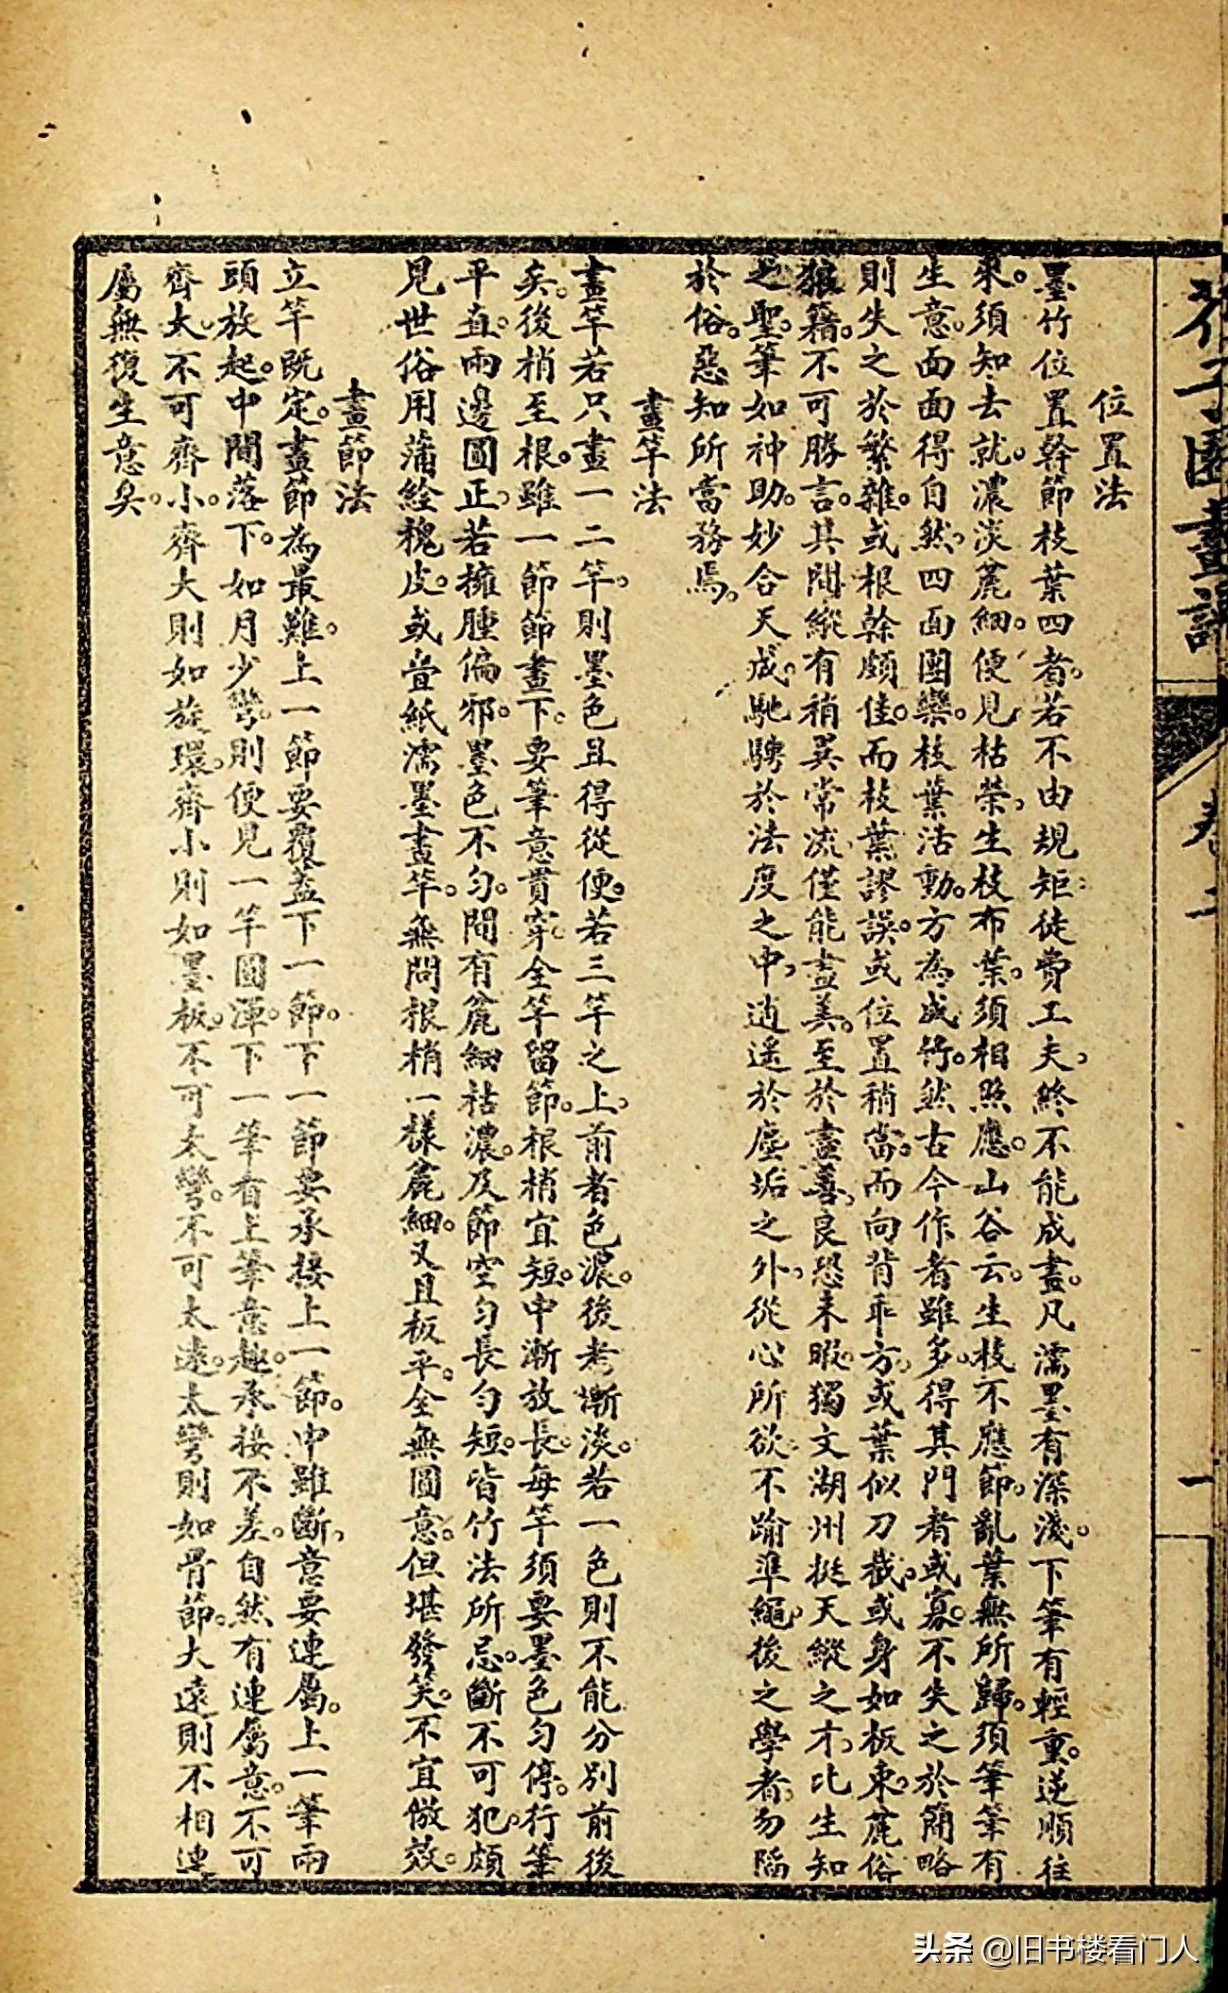 位置法
墨竹位置幹節枝葉四者。若不由規矩。徒費工夫。終不能成畫。凡濡墨有深淺。下筆有輕重。逆順往
來。須知去就。濃淡麄細。便見枯榮。生枝布葉。須相照應。山谷云。生枝不應節。亂葉無所歸。須筆筆有
生意。面面得自然。四面團欒。枝葉活動。方為成竹。然古今作者雖多。得其門者或寡。不失之於簡略
則失之於繁雜。或根幹頗佳。而枝葉謬誤。或位置稍當。而向背乖方。或葉似刀截。或身如板束。麄俗
狼籍。不可勝言。其間縱有稍異常流。僅能盡美。至於盡善。良恐未暇。獨文湖州挺天縱之才。比生知
之聖。筆如神助。妙合天成。馳騁於法度之中。逍遙於塵垢之外。從心所欲。不踰準繩。後之學者。勿陷
於俗。惡知所當務焉。
畫竿法
畫竿若只畫一二竿。則墨色且得從便。若三竿之上。前者色濃。後者漸淡。若一色則不能分別前後
矣。後梢至根。雖一節節畫下。要筆意貫穿。全竿留節。根梢宜短。中漸放長。每竿須要墨色勻停。行筆
平直。兩邊圓正。若擁腫偏邪。墨色不勻。間有麄細枯濃。及節空勻長勻短。皆竹法所忌。斷不可犯。頗
見世俗用蒲絟槐皮。或疊紙濡墨畫竿。無問根梢一樣麄細。又且板平。全無圓意。但堪發笑。不宜倣效。
畫節法
立竿既定。畫節為最難。上一節要覆蓋下一節。下一節要承接上一節。中雖斷。意要連屬。上一筆兩
頭放起。中間落下。如月少彎。則便見一竿圓渾。下一筆看上筆意趣。承接不差。自然有連屬意。不可
齊大。不可齊小。齊大則如旋環。齊小則如墨板。不可太彎。不可太遠。太彎則如骨節。大遠則不相連
屬無復生意矣。
卷二
一
头条 @旧书楼看门人